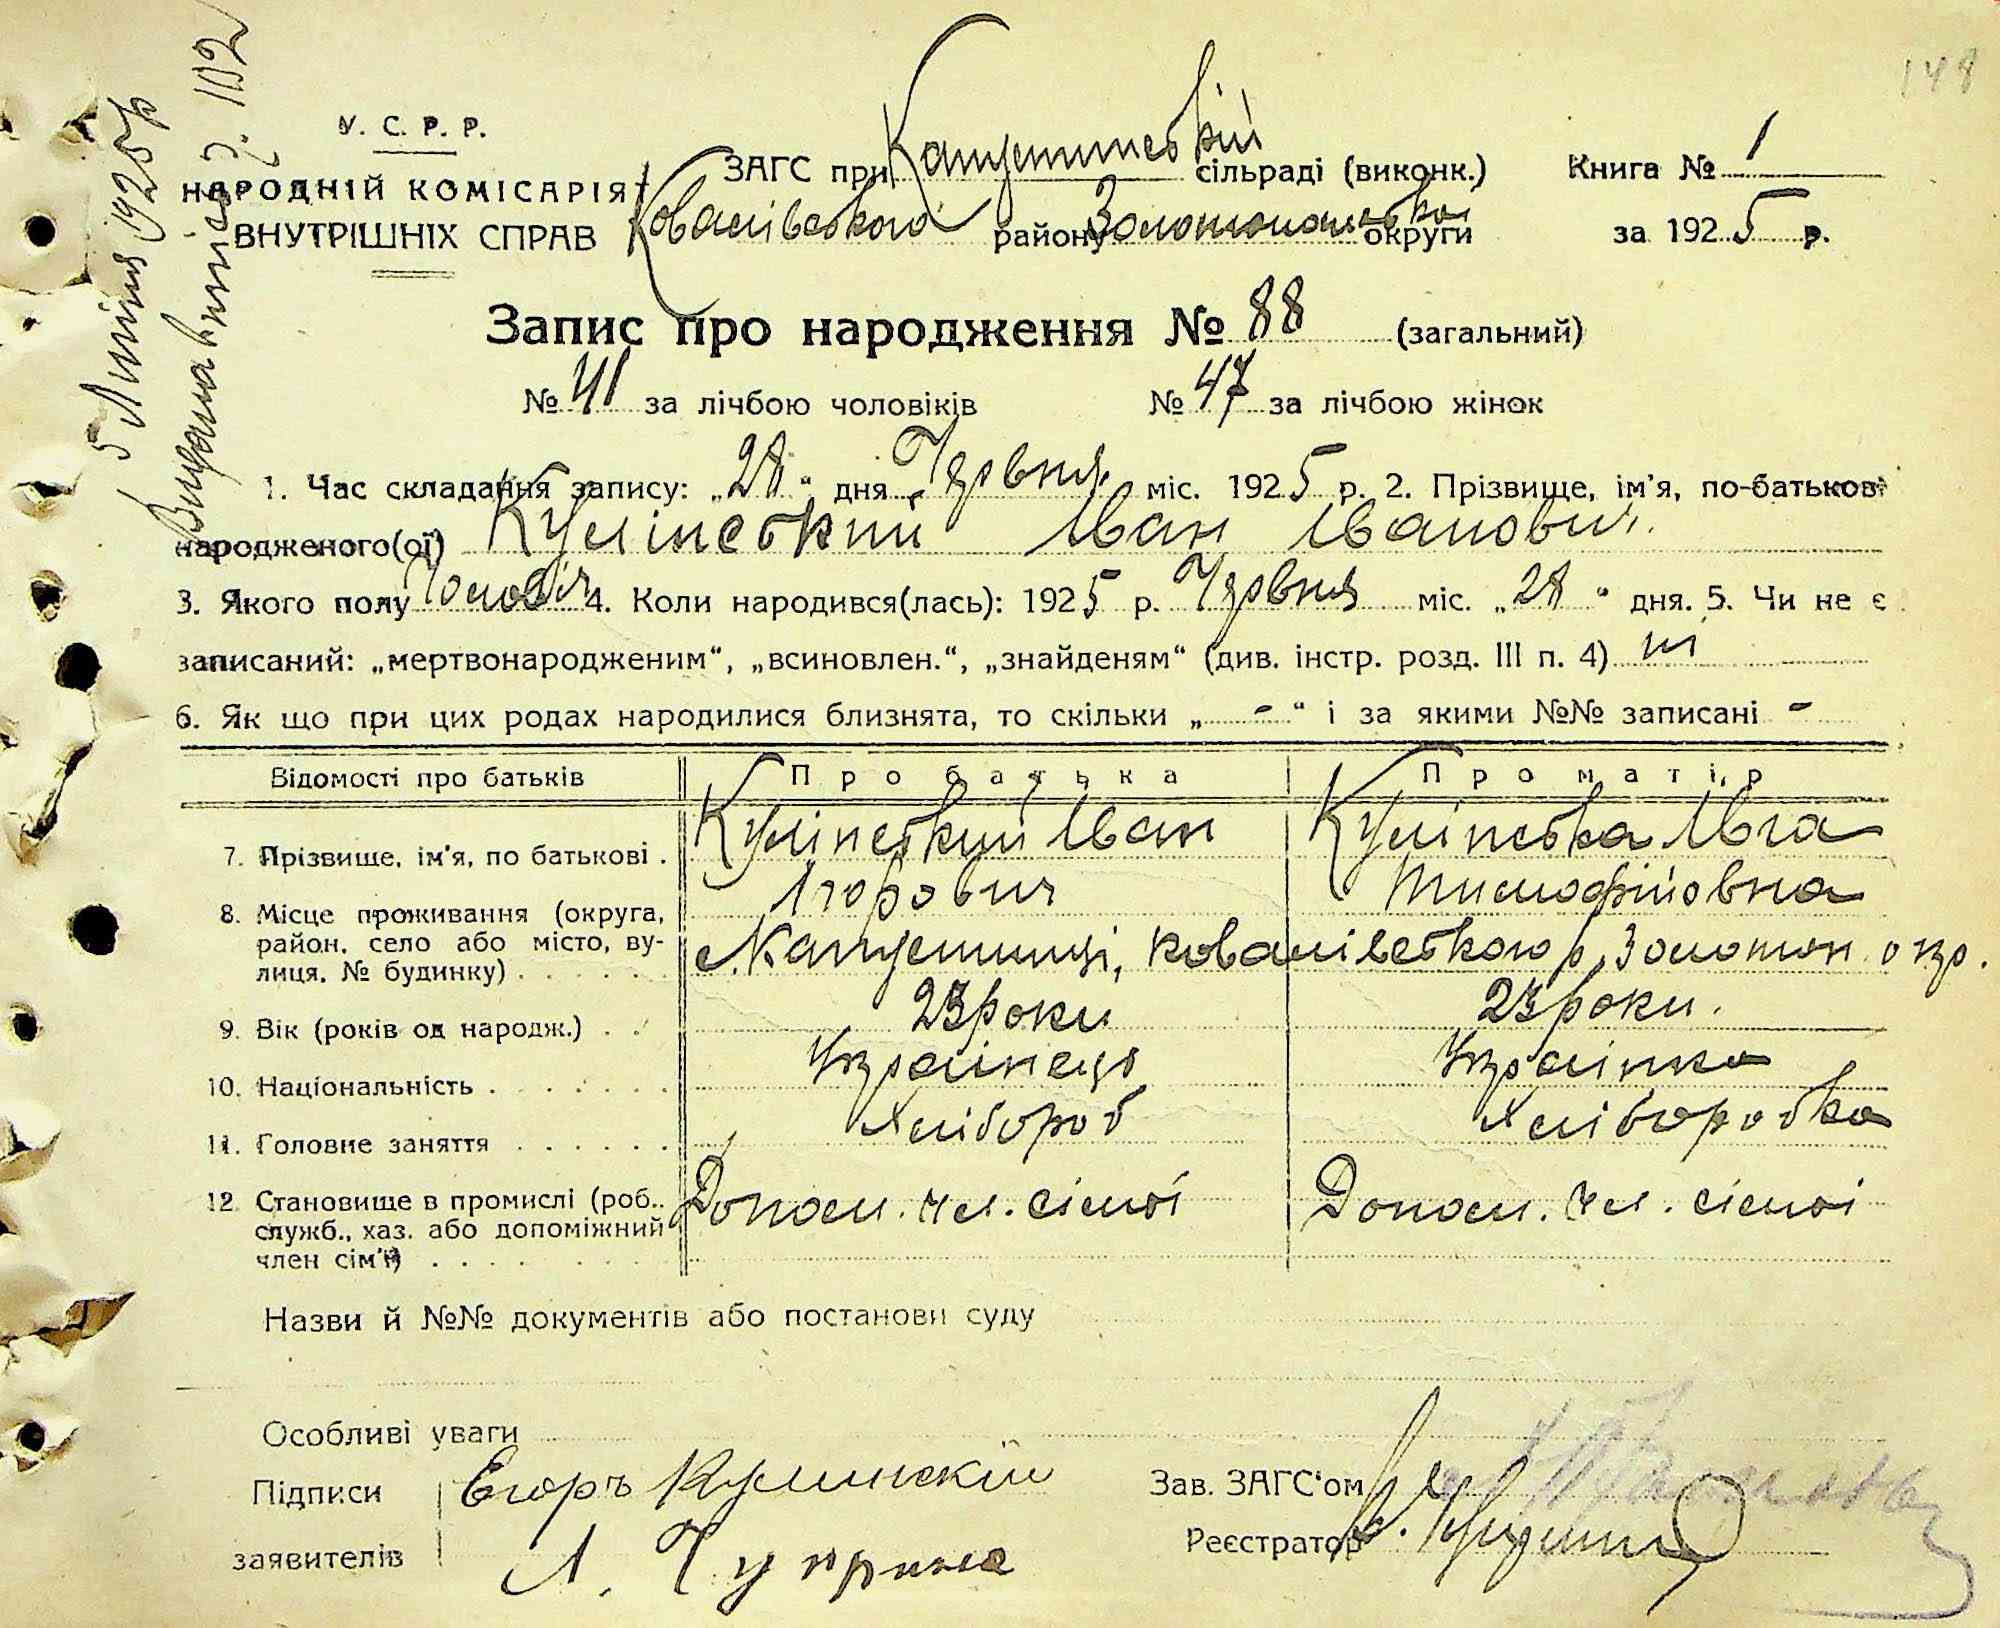 148
У. С. Р. Р.
НАРОДНІЙ КОМІСАРІЯТ
ВНУТРІШНІХ СПРАВ
5 Липня 1925 р
Видана виписка 102
ЗАГС при Капустинській сільраді (виконк.)
Ковалівського району Золотоноської округи
Книга № 1
за 1925 р.
Запис про народження № 88 (загальний)
№ 41 за лічбою чоловіків № 47 за лічбою жінок
1. Час складання запису: „28“ дня Червня міс. 1925 р. 2. Прізвище, ім'я, по-батькові
народженого(ої) Кулінський Іван Іванович.
3. Якого полу Чолов 4. Коли народився(лась): 1925 р. Червня міс. „28“ дня. 5. Чи не є
записаний: „мертвонародженим“, „всиновлен.“, „знайденям“ (див. інстр. розд. III п. 4) ні
6. Як що при цих родах народилися близнята, то скільки „ - “ і за якими №№ записані -
Відомості про батьків Про батька Про матір
7. Прізвище, ім'я, по батькові . Кулінський Іван Кулінська Ивга
Ігорович Тимофійовна
8. Місце проживання (округа,
район, село або місто, ву-
лиця, № будинку) с. Капустинці, Ковалівського р, Золотон. окр.
9. Вік (років од народж.) 23 роки 23 роки.
10. Національність Українець Українка
11. Головне заняття Хлібороб Хлiборобка
12. Становище в промислі (роб..
служб., хаз. або допоміжний
член сім'ї) Допом. чл. сімої Допом. чл. сімої
Назви й №№ документів або постанови суду
Особливі уваги
Підписи Егоръ Кулинскій
заявителів Л. Чуприна
Зав. ЗАГС'ом
Реєстратор